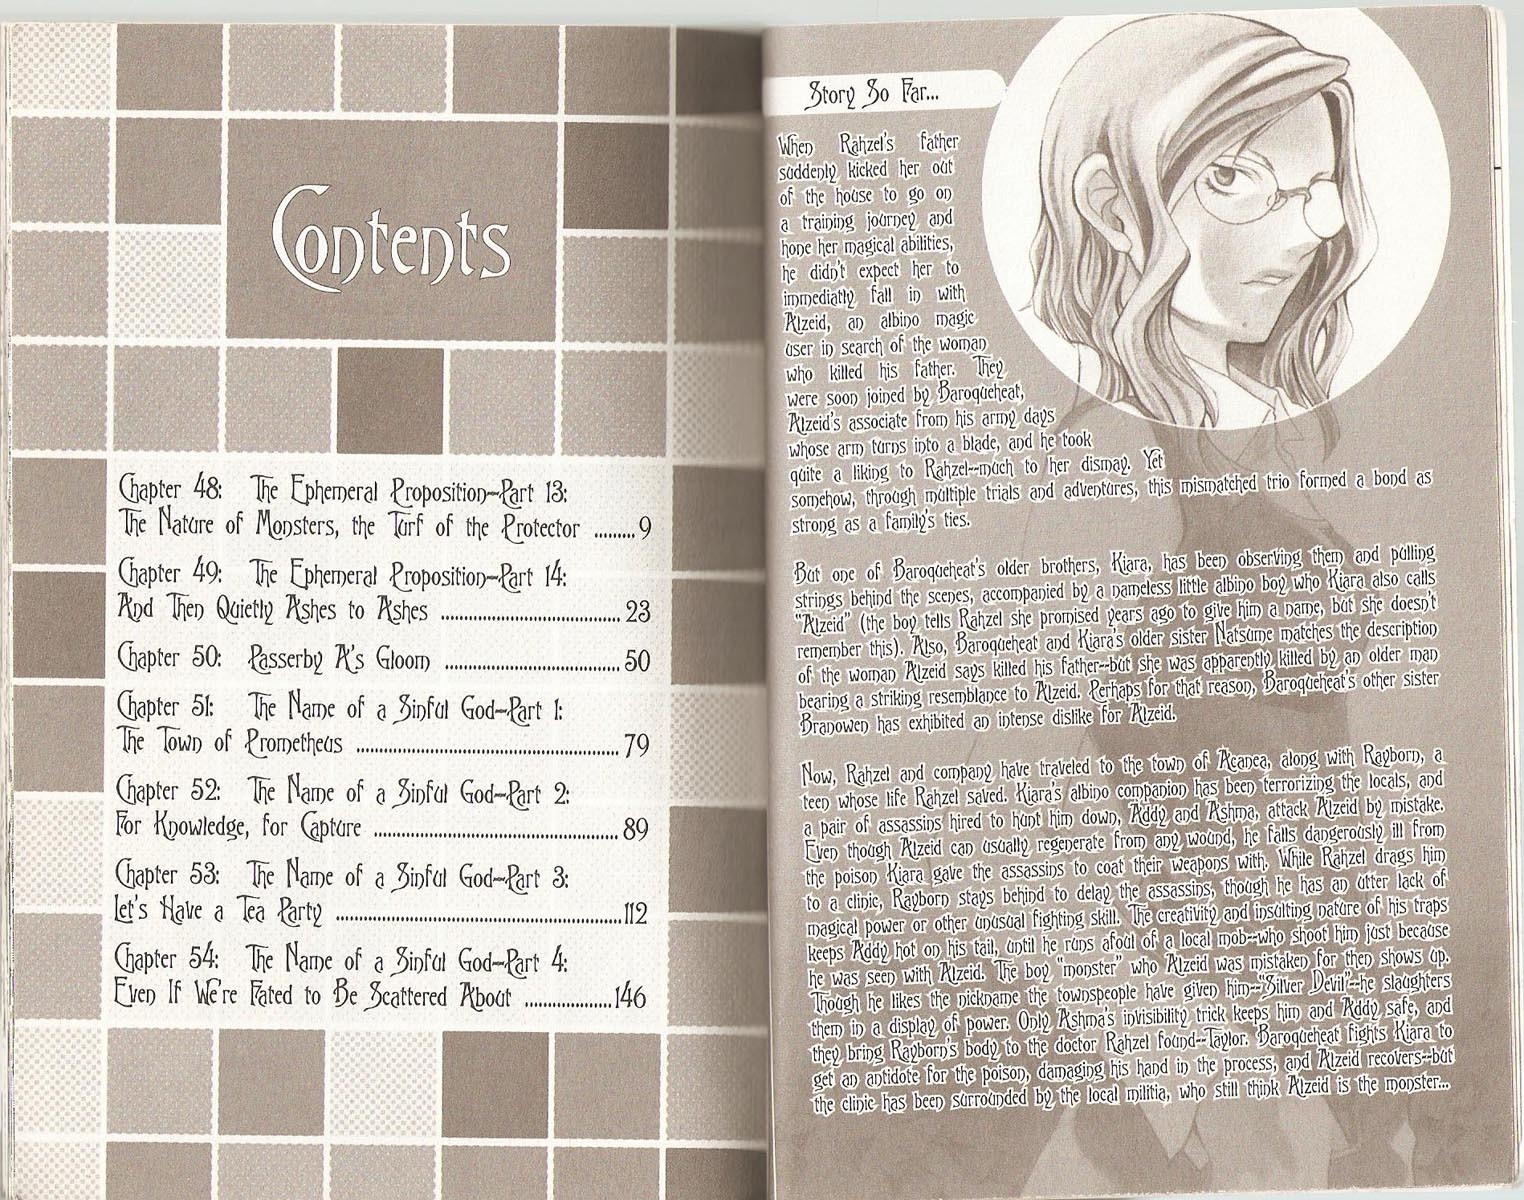 Contents
Chapter 48: The Ephemeral Proposition--Part 13:
The Nature of Monsters, the Turf of the Protector .........9
Chapter 49: The Ephemeral Proposition--Part 14:
And Then Quietly Ashes to Ashes ........................................ 23
Chapter 50: Passerby A's Gloom ........................................ 50
Chapter 51: The Name of a Sinful God--Part 1:
The Town of Prometheus ........................................ 79
Chapter 52: The Name of a Sinful God--Part 2:
For Knowledge, for Capture ........................................ 89
Chapter 53: The Name of a Sinful God--Part 3:
Let's Have a Tea Party ........................................ 112
Chapter 54: The Name of a Sinful God--Part 4:
Even If We're Fated to Be Scattered About ..................146
Story So Far...
When Rahzel's father
suddenly kicked her out
of the house to go on
a training journey and
hone her magical abilities,
he didn't expect her to
immediatly fall in with
Alzeid, an albino magic
user in search of the woman
who killed his father. They
were soon joined by Baroqueheat,
Alzeid's associate from his army days
whose arm turns into a blade, and he took
quite a liking to Rahzel--much to her dismay. Yet
somehow, through multiple trials and adventures, this mismatched trio formed a bond as
strong as a family's ties.
But one of Baroqueheat's older brothers, Kiara, has been observing them and pulling
strings behind the scenes, accompanied by a nameless little albino boy who Kiara also calls
"Alzeid" (the boy tells Rahzel she promised years ago to give him a name, but she doesn't
remember this). Also, Baroqueheat and Kiara's older sister Natsume matches the description
of the woman Alzeid says killed his father--but she was apparently killed by an older man
bearing a striking resemblance to Alzeid. Perhaps for that reason, Baroqueheat's other sister
Branowen has exhibited an intense dislike for Alzeid.
Now, Rahzel and company have traveled to the town of Acanea, along with Rayborn, a
teen whose life Rahzel saved. Kiara's albino companion has been terrorizing the locals, and
a pair of assassins hired to hunt him down, Addy and Ashma, attack Alzeid by mistake.
Even though Alzeid can usually regenerate from any wound, he falls dangerously ill from
the poison Kiara gave the assassins to coat their weapons with. While Rahzel drags him
to a clinic, Rayborn stays behind to delay the assassins, though he has an utter lack of
magical power or other unusual fighting skill. The creativity and insulting nature of his traps
keeps Addy hot on his tail, until he runs afoul of a local mob--who shoot him just because
he was seen with Alzeid. The boy "monster" who Alzeid was mistaken for then shows up.
Though he likes the nickname the townspeople have given him--"Silver Devil"--he slaughters
them in a display of power. Only Ashma's invisibility trick keeps him and Addy safe, and
they bring Rayborn's body to the doctor Rahzel found--Taylor. Baroqueheat fights Kiara to
get an antidote for the poison, damaging his hand in the process, and Alzeid recovers--but
the clinic has been surrounded by the local militia, who still think Alzeid is the monster...